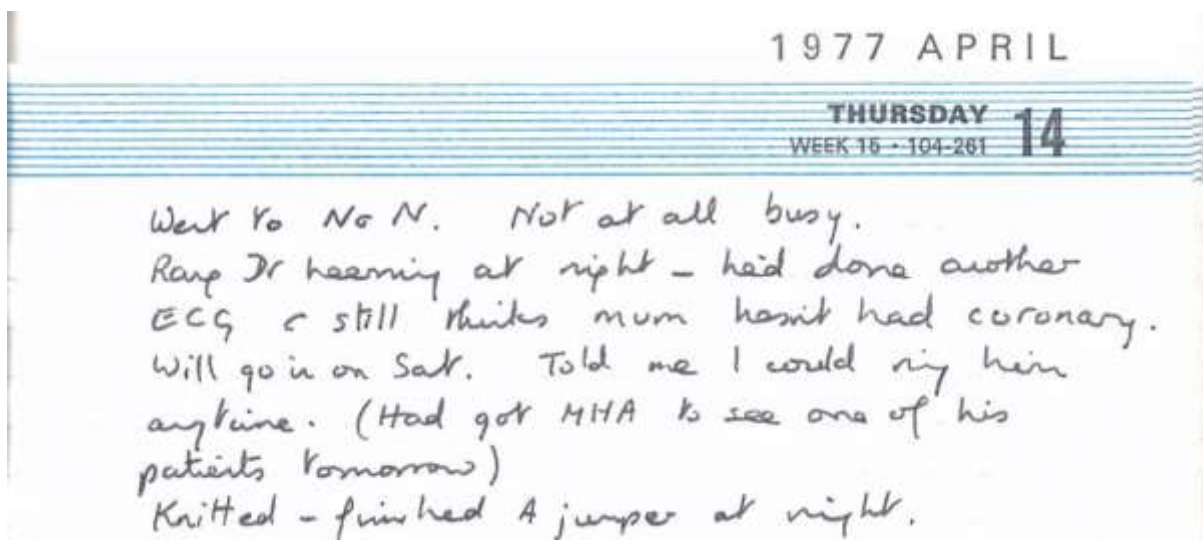 1977 APRIL
THURSDAY 14
WEEK 15 · 104-261
Went to No N. Not at all busy.
Rang Dr at night – he'd done another
ECG & still thinks mum hasn't had coronary.
Will go in on Sat. Told me I could ring him
anytime. (Had got MHA to see one of his
patients tomorrow)
Knitted – finished A jumper at night.